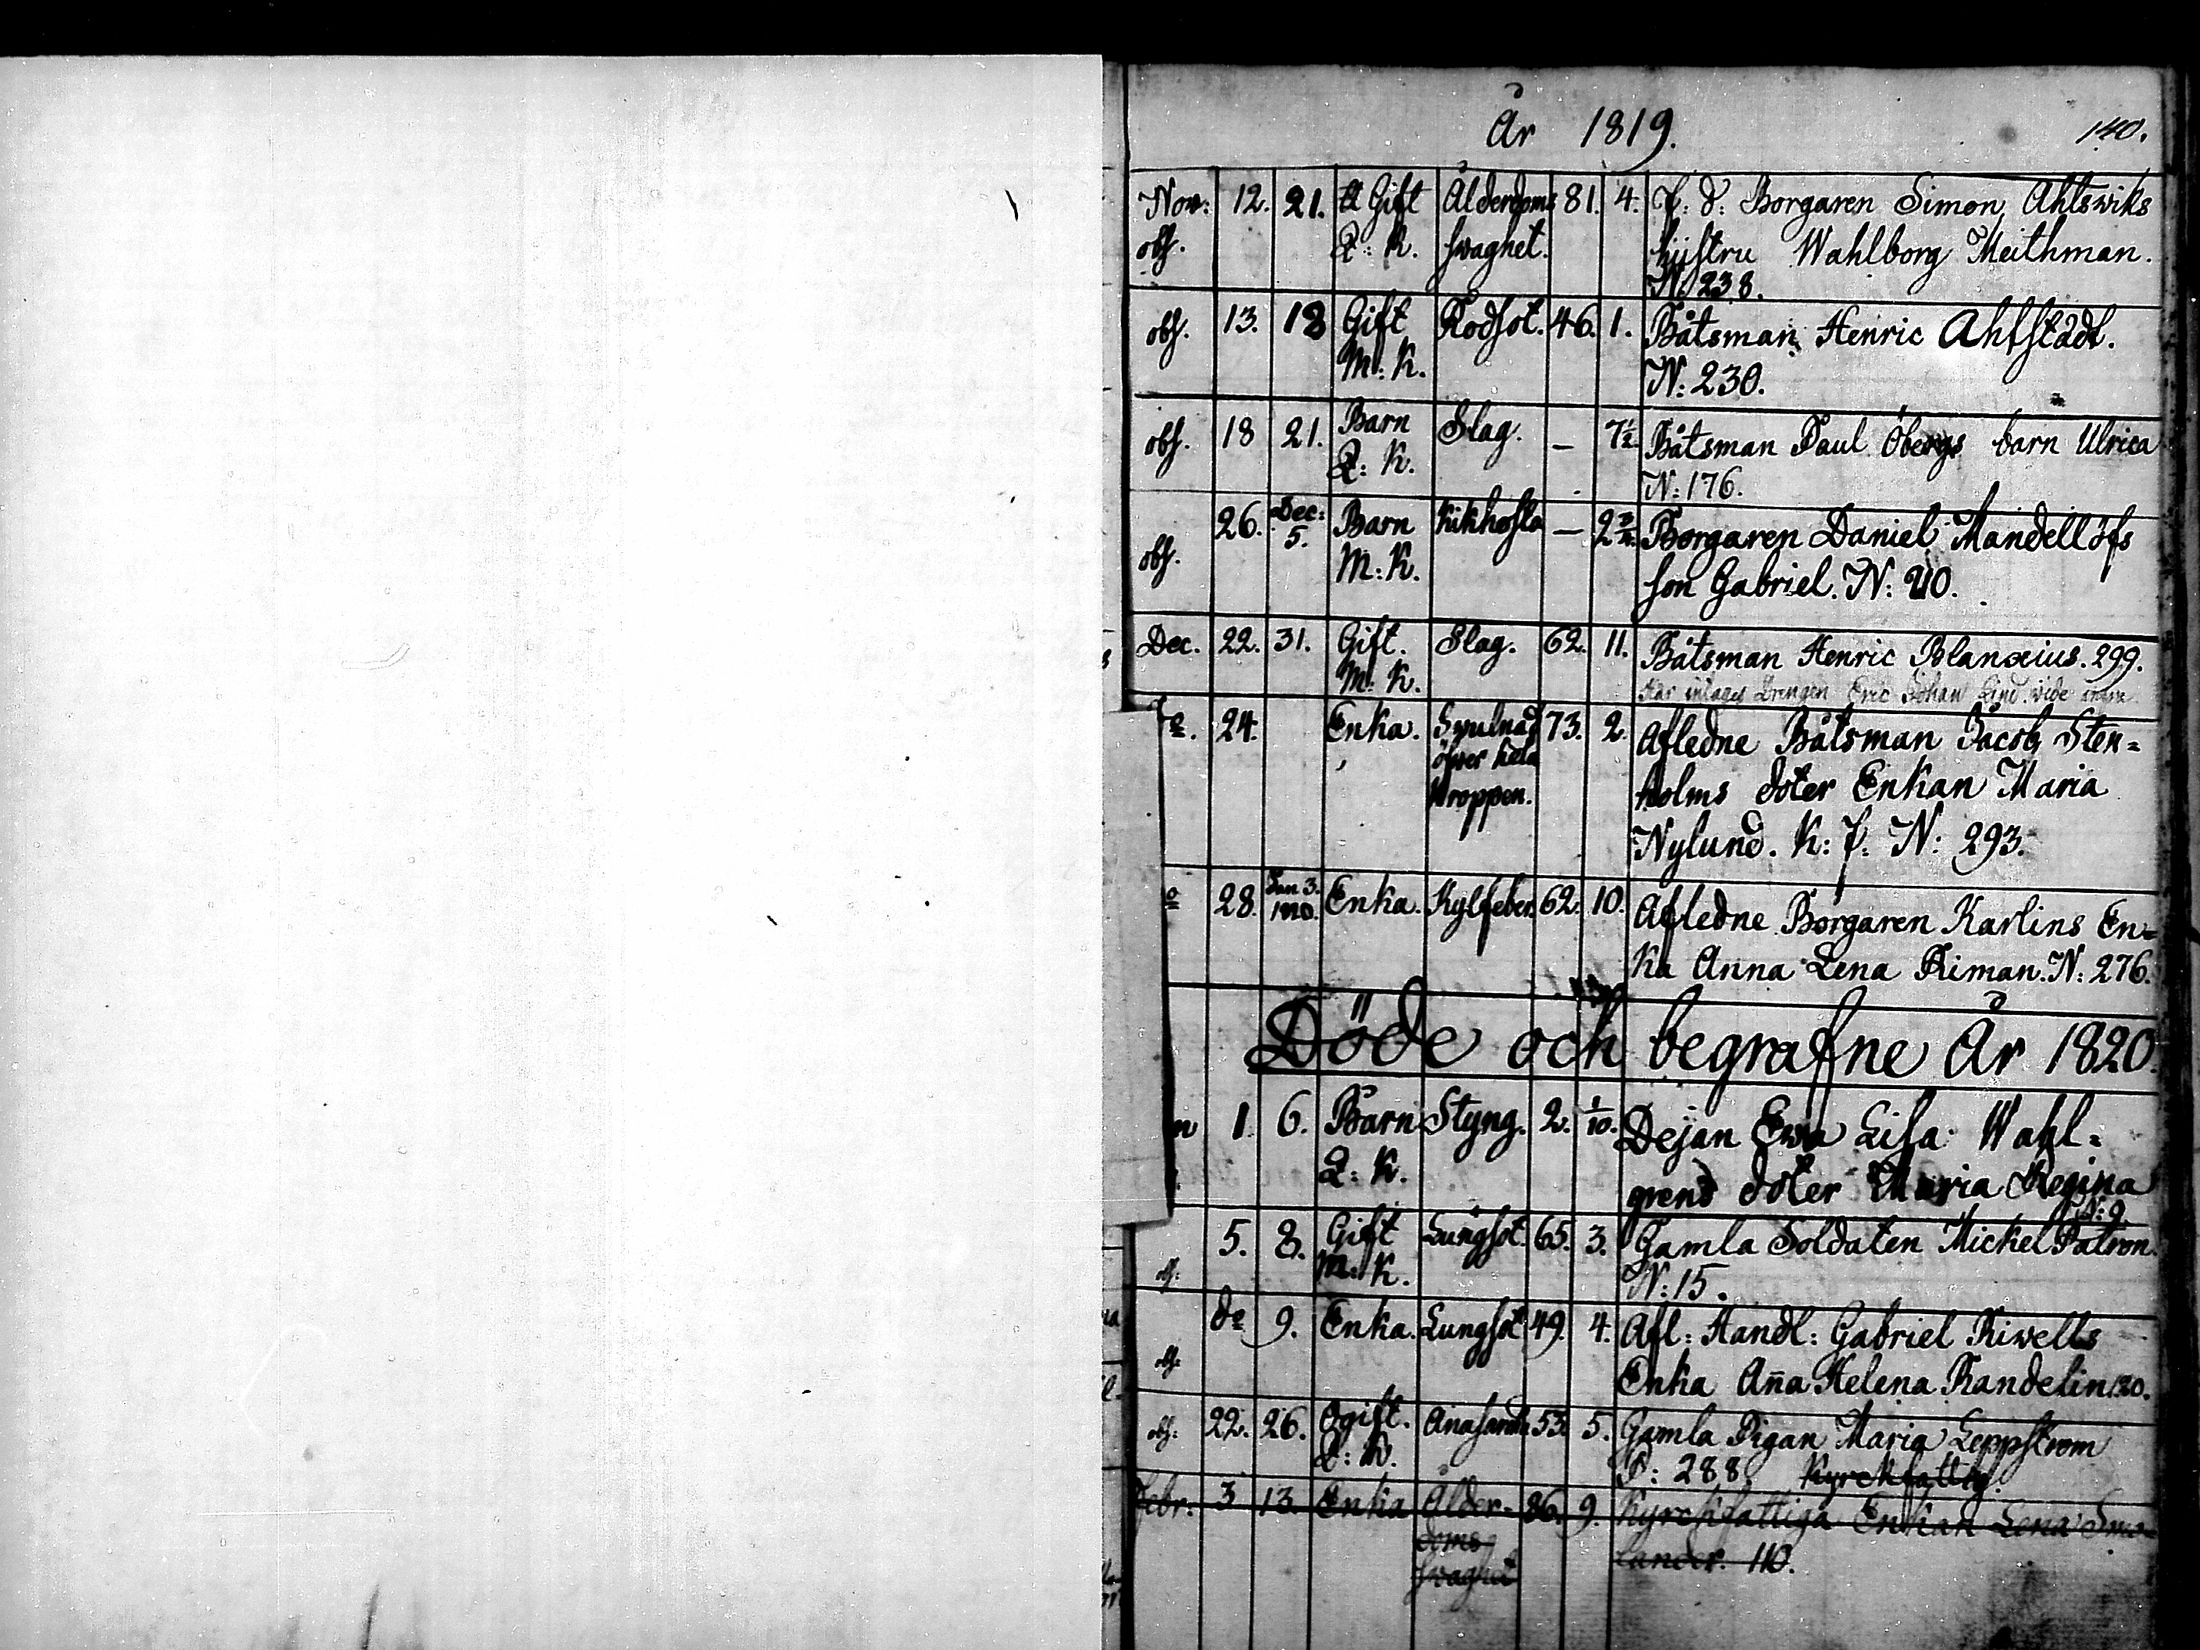 År 1819.
140.
Nov: 12. 21. Gift Ålderdoms 81. 4. F. d. Borgaren Simon Ahlswiks
obs. Q: K. swaghet. hustru Wahlborg Meithman.
N: 238.
obs. 13. 18 Gift Rodsot. 46. 1. Båtsman Henric Ahlstadt.
M: K. N: 230.
obs. 18 21. Barn Slag. — 7½ Båtsman Paul Öbergs barn Ulrica
Q: K. N: 176.
26. Dec: 5. Barn Kikhosta — 2¾ Borgaren Daniel Mandellöfs
obs. M: K. son Gabriel. N: 210.
Dec. 22. 31. Gift. Slag. 62. 11. Båtsman Henric Polanæius. 299.
M: K. Här intages Drengen Eric Johan Lind. vide
24. Enka. Swulnad 73. 2. Afledne Båtsman Jacob Sten=
öfwer hela holms doter Enkan Maria
kroppen. Nylund. K: f. N: 293.
28. Jan 3. 1820. Enka. Kylfeber. 62. 10. Afledne Borgaren Karlins En=
ka Anna Lena Riman. N: 276.
Döde och begrafne År 1820.
n 1. 6. Barn Styng. 2. 1/10. Dejan Ewa Lisa Wahl=
Q: K. grens doter Maria Regina
N: 9.
5. 8. Gift Lungsot. 65. 3. Gamla Soldaten Mickel Patron.
obs: M: K. N: 15.
do 9. Enka. Lungsot 49. 4. Afl: Handl: Gabriel Kiwells
obs: Enka Aña Helena Randelin 120.
obs: 22. 26. Ogift. 53. 5. Gamla Pigan Maria Leppstrom
Q: K. N: 288. Kyrckfattig.
Febr: 3 13. Enka Ålder- 86. 9. Kyrckfattiga Enkan Lena Smo-
doms lander. 110.
swaghet